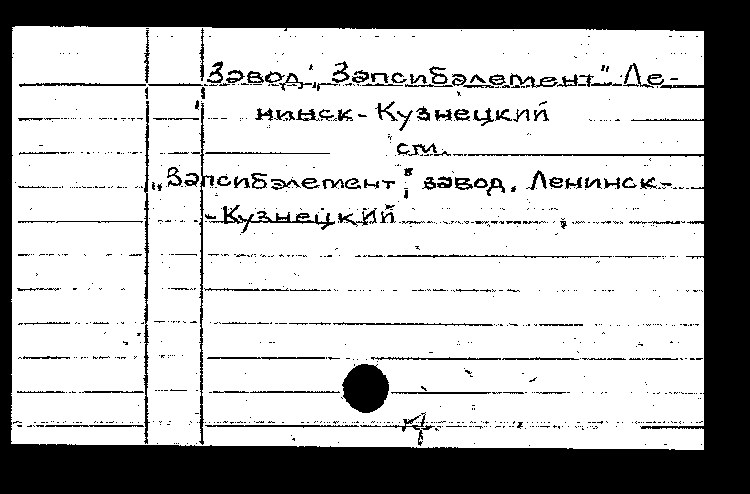 Завод „Запсибэлемент" Ле-
нинск-Кузнецкий
см.
„Запсибэлемент", завод. Ленинск-
-Кузнецкий